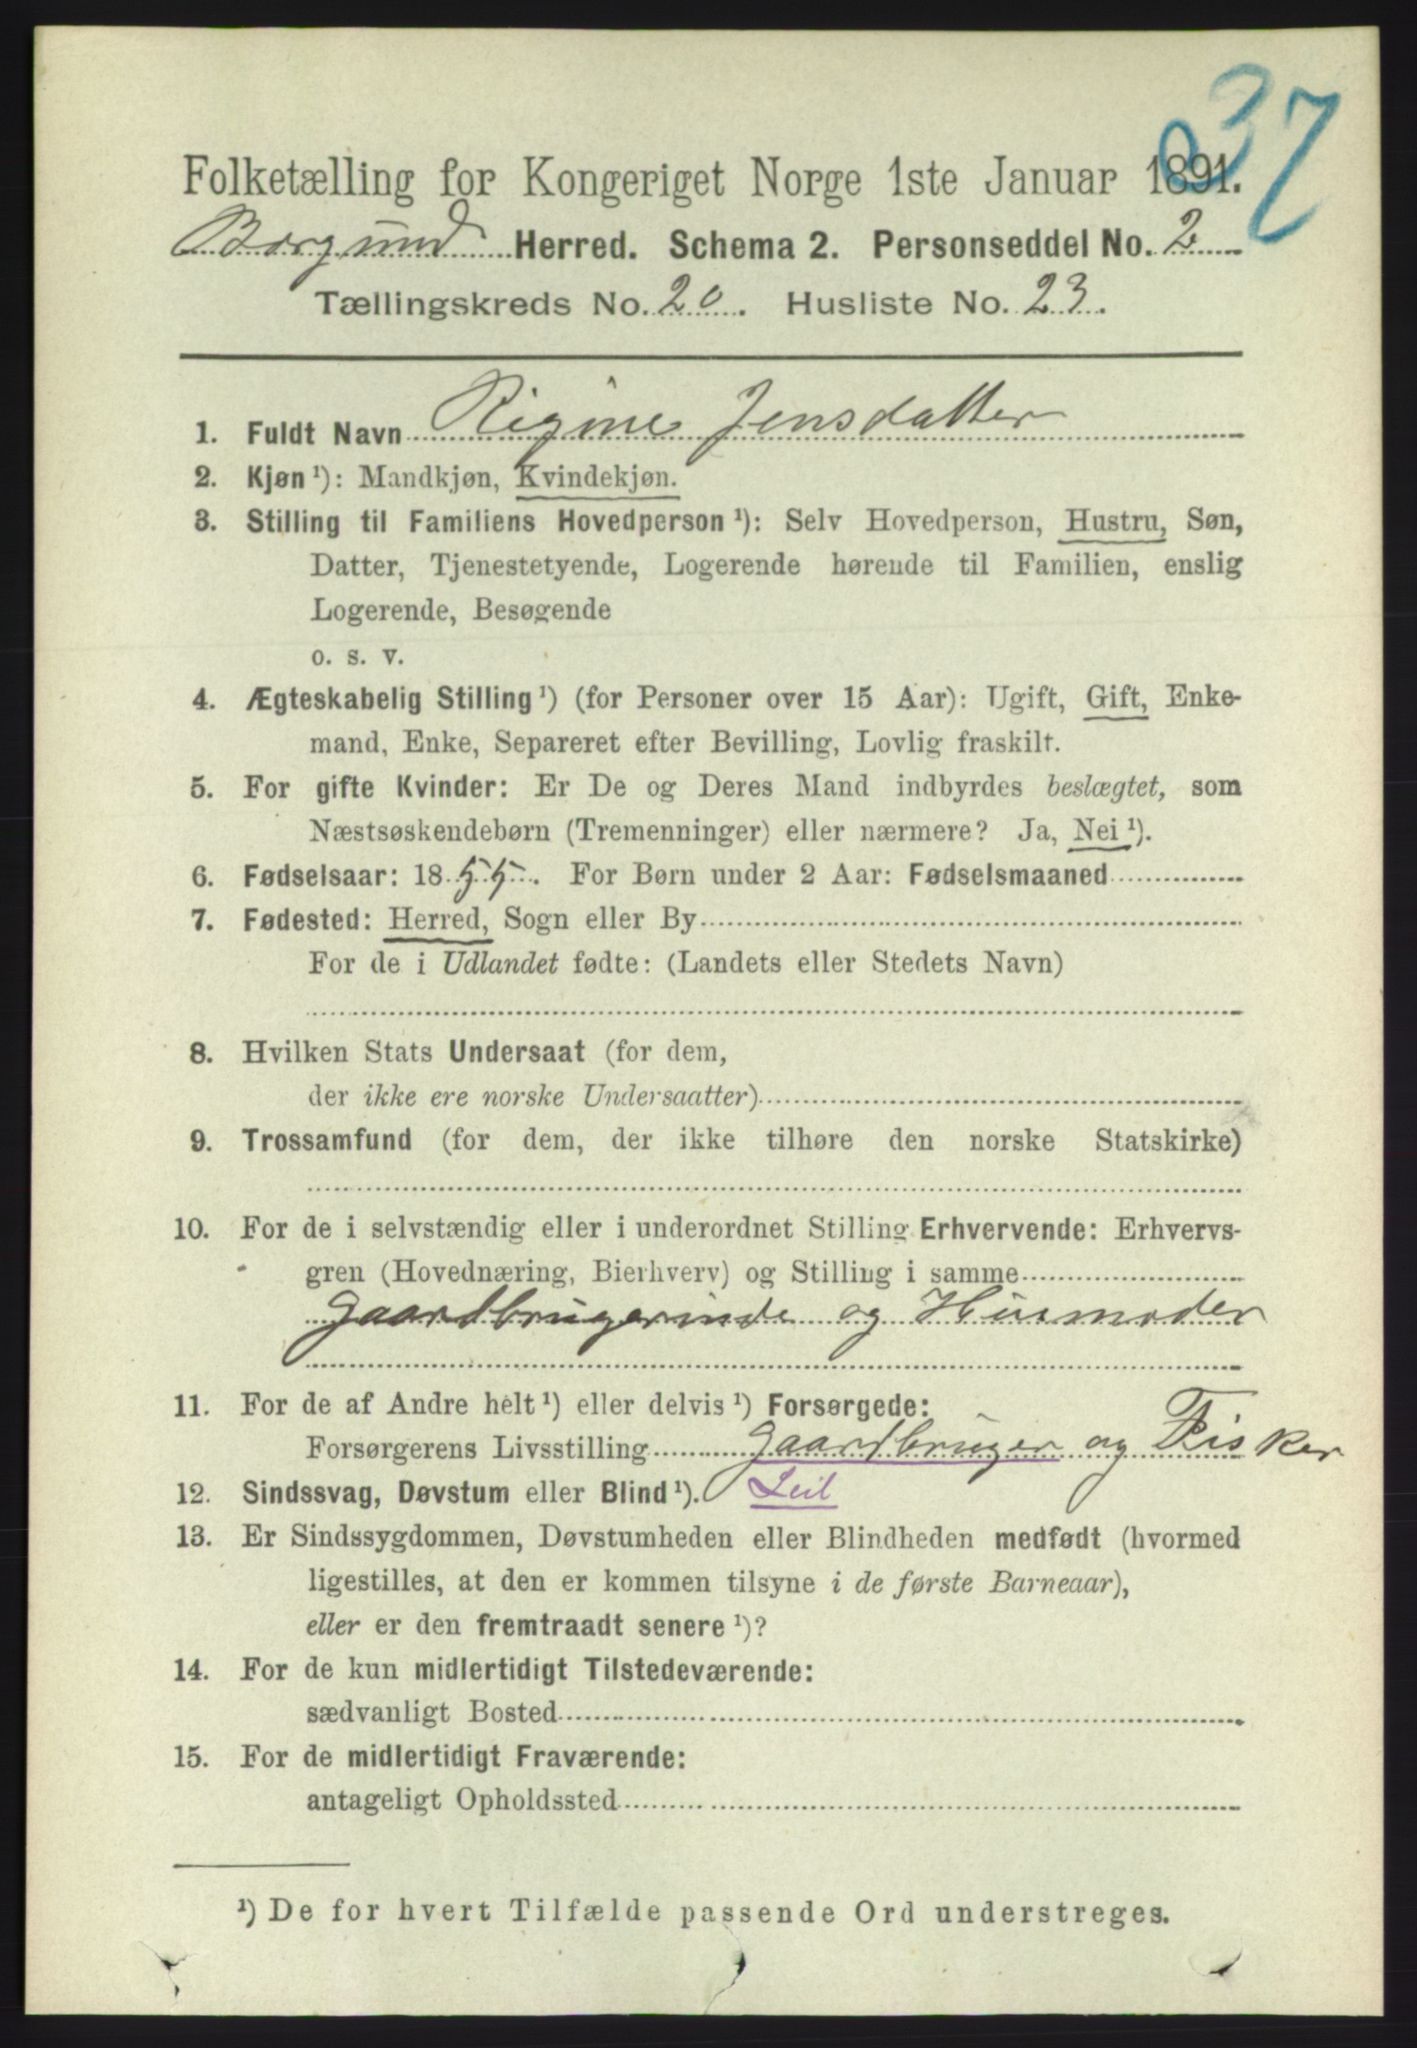 037
Folketælling for Kongeriget Norge 1ste Januar 1891.
Borgund Herred. Schema 2. Personseddel No. 2
Tællingskreds No. 20. Husliste No. 23.
1. Fuldt Navn Regine Jensdatter
2. Kjøn ¹): Mandkjøn, Kvindekjøn.
3. Stilling til Familiens Hovedperson ¹): Selv Hovedperson, Hustru, Søn,
Datter, Tjenestetyende, Logerende hørende til Familien, enslig
Logerende, Besøgende
o. s. v.
4. Ægteskabelig Stilling ¹) (for Personer over 15 Aar): Ugift, Gift, Enke-
mand, Enke, Separeret efter Bevilling, Lovlig fraskilt.
5. For gifte Kvinder: Er De og Deres Mand indbyrdes beslægtet, som
Næstsøskendebørn (Tremenninger) eller nærmere? Ja, Nei ¹).
6. Fødselsaar: 1855. For Børn under 2 Aar: Fødselsmaaned
7. Fødested: Herred, Sogn eller By
For de i Udlandet fødte: (Landets eller Stedets Navn)
8. Hvilken Stats Undersaat (for dem,
der ikke ere norske Undersaatter)
9. Trossamfund (for dem, der ikke tilhøre den norske Statskirke)
10. For de i selvstændig eller i underordnet Stilling Erhvervende: Erhvervs-
gren (Hovednæring, Bierhverv) og Stilling i samme
Gaardbrugerinde og Husmoder
11. For de af Andre helt ¹) eller delvis ¹) Forsørgede:
Forsørgerens Livsstilling Gaardbruger og Fisker
12. Sindssvag, Døvstum eller Blind ¹). Leil
13. Er Sindssygdommen, Døvstumheden eller Blindheden medfødt (hvormed
ligestilles, at den er kommen tilsyne i de første Barneaar),
eller er den fremtraadt senere ¹)?
14. For de kun midlertidigt Tilstedeværende:
sædvanligt Bosted
15. For de midlertidigt Fraværende:
antageligt Opholdssted
¹) De for hvert Tilfælde passende Ord understreges.